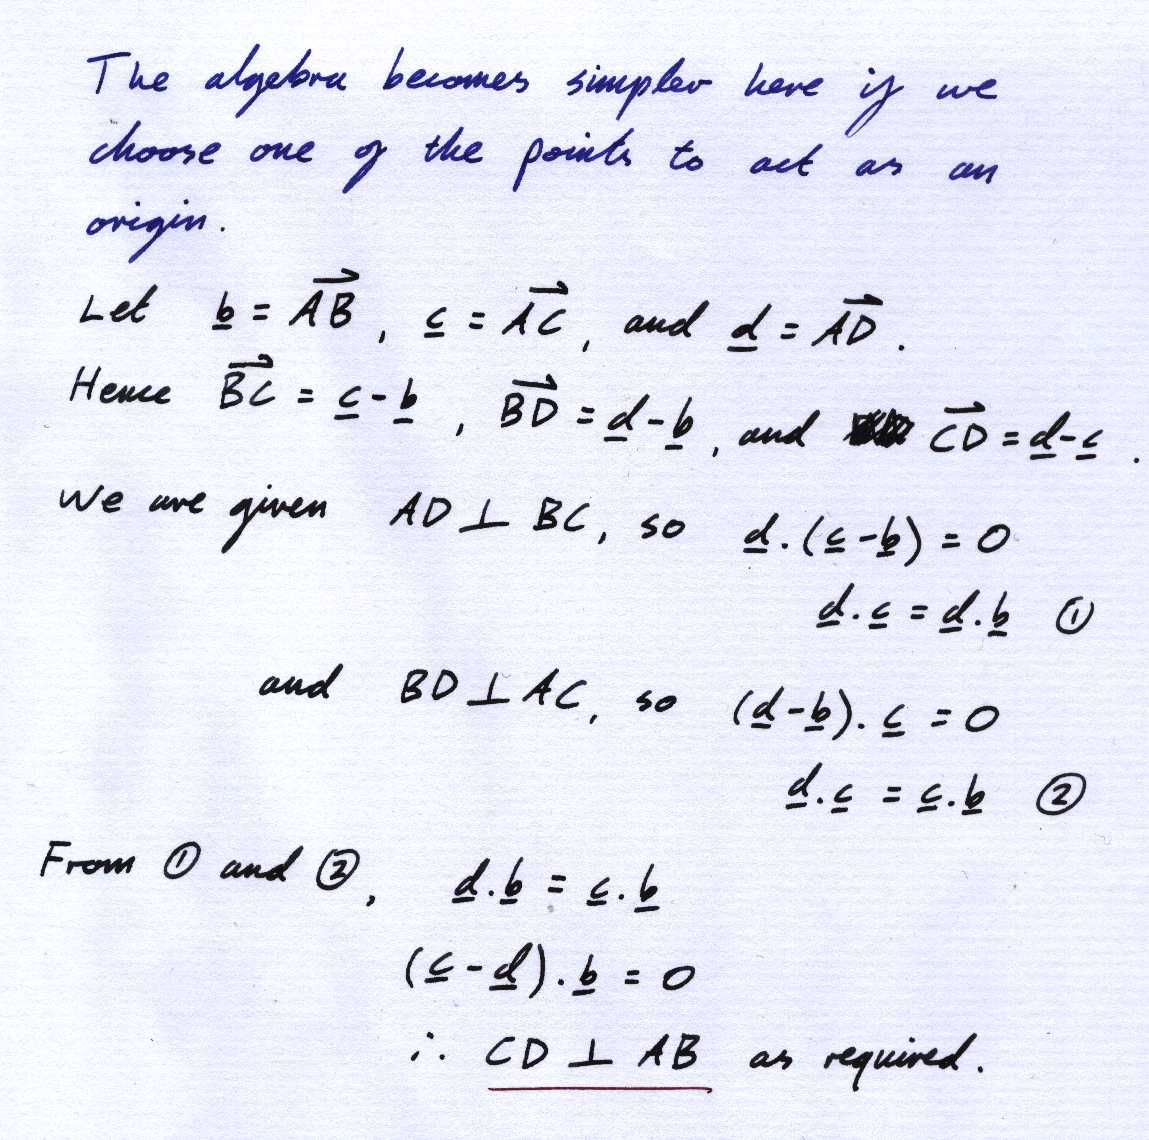 The algebra becomes simpler here if we
choose one of the points to act as an
origin.
Let b = AB, c = AC, and d = AD.
Hence BC = c-b, BD = d-b, and CD = d-c.
We are given AD ⊥ BC, so d.(c-b) = 0
d.c = d.b ①
and BD ⊥ AC, so (d-b).c = 0
d.c = c.b ②
From ① and ②, d.b = c.b
(c-d).b = 0
∴ CD ⊥ AB as required.